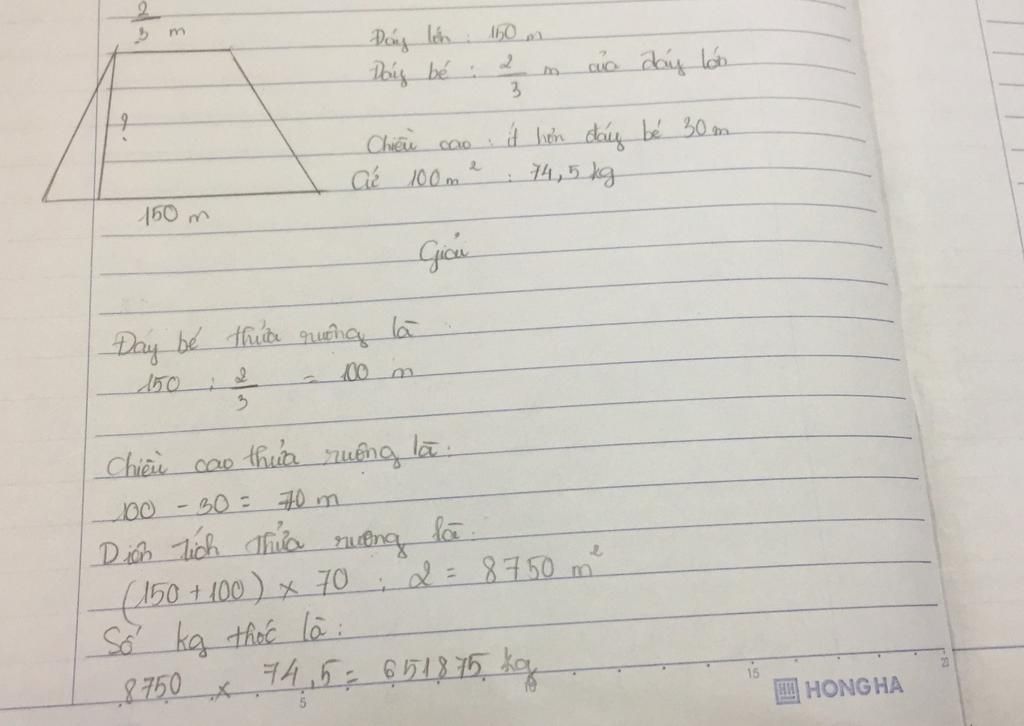 2/3 m
Đáy lớn : 150 m
Đáy bé : 2/3 m của đáy lớn
?
Chiều cao : ít hơn đáy bé 30m
Cứ 100m² : 74,5 kg
150 m
Giải
Đáy bé thửa ruộng là
150 : 2/3 = 100 m
Chiều cao thửa ruộng là:
100 - 30 = 70 m
Diện tích thửa ruộng là:
(150 + 100) x 70 : 2 = 8750 m²
Số kg thóc là:
8750 x 74,5 = 651875 kg
5 10 15 20
HONG HA